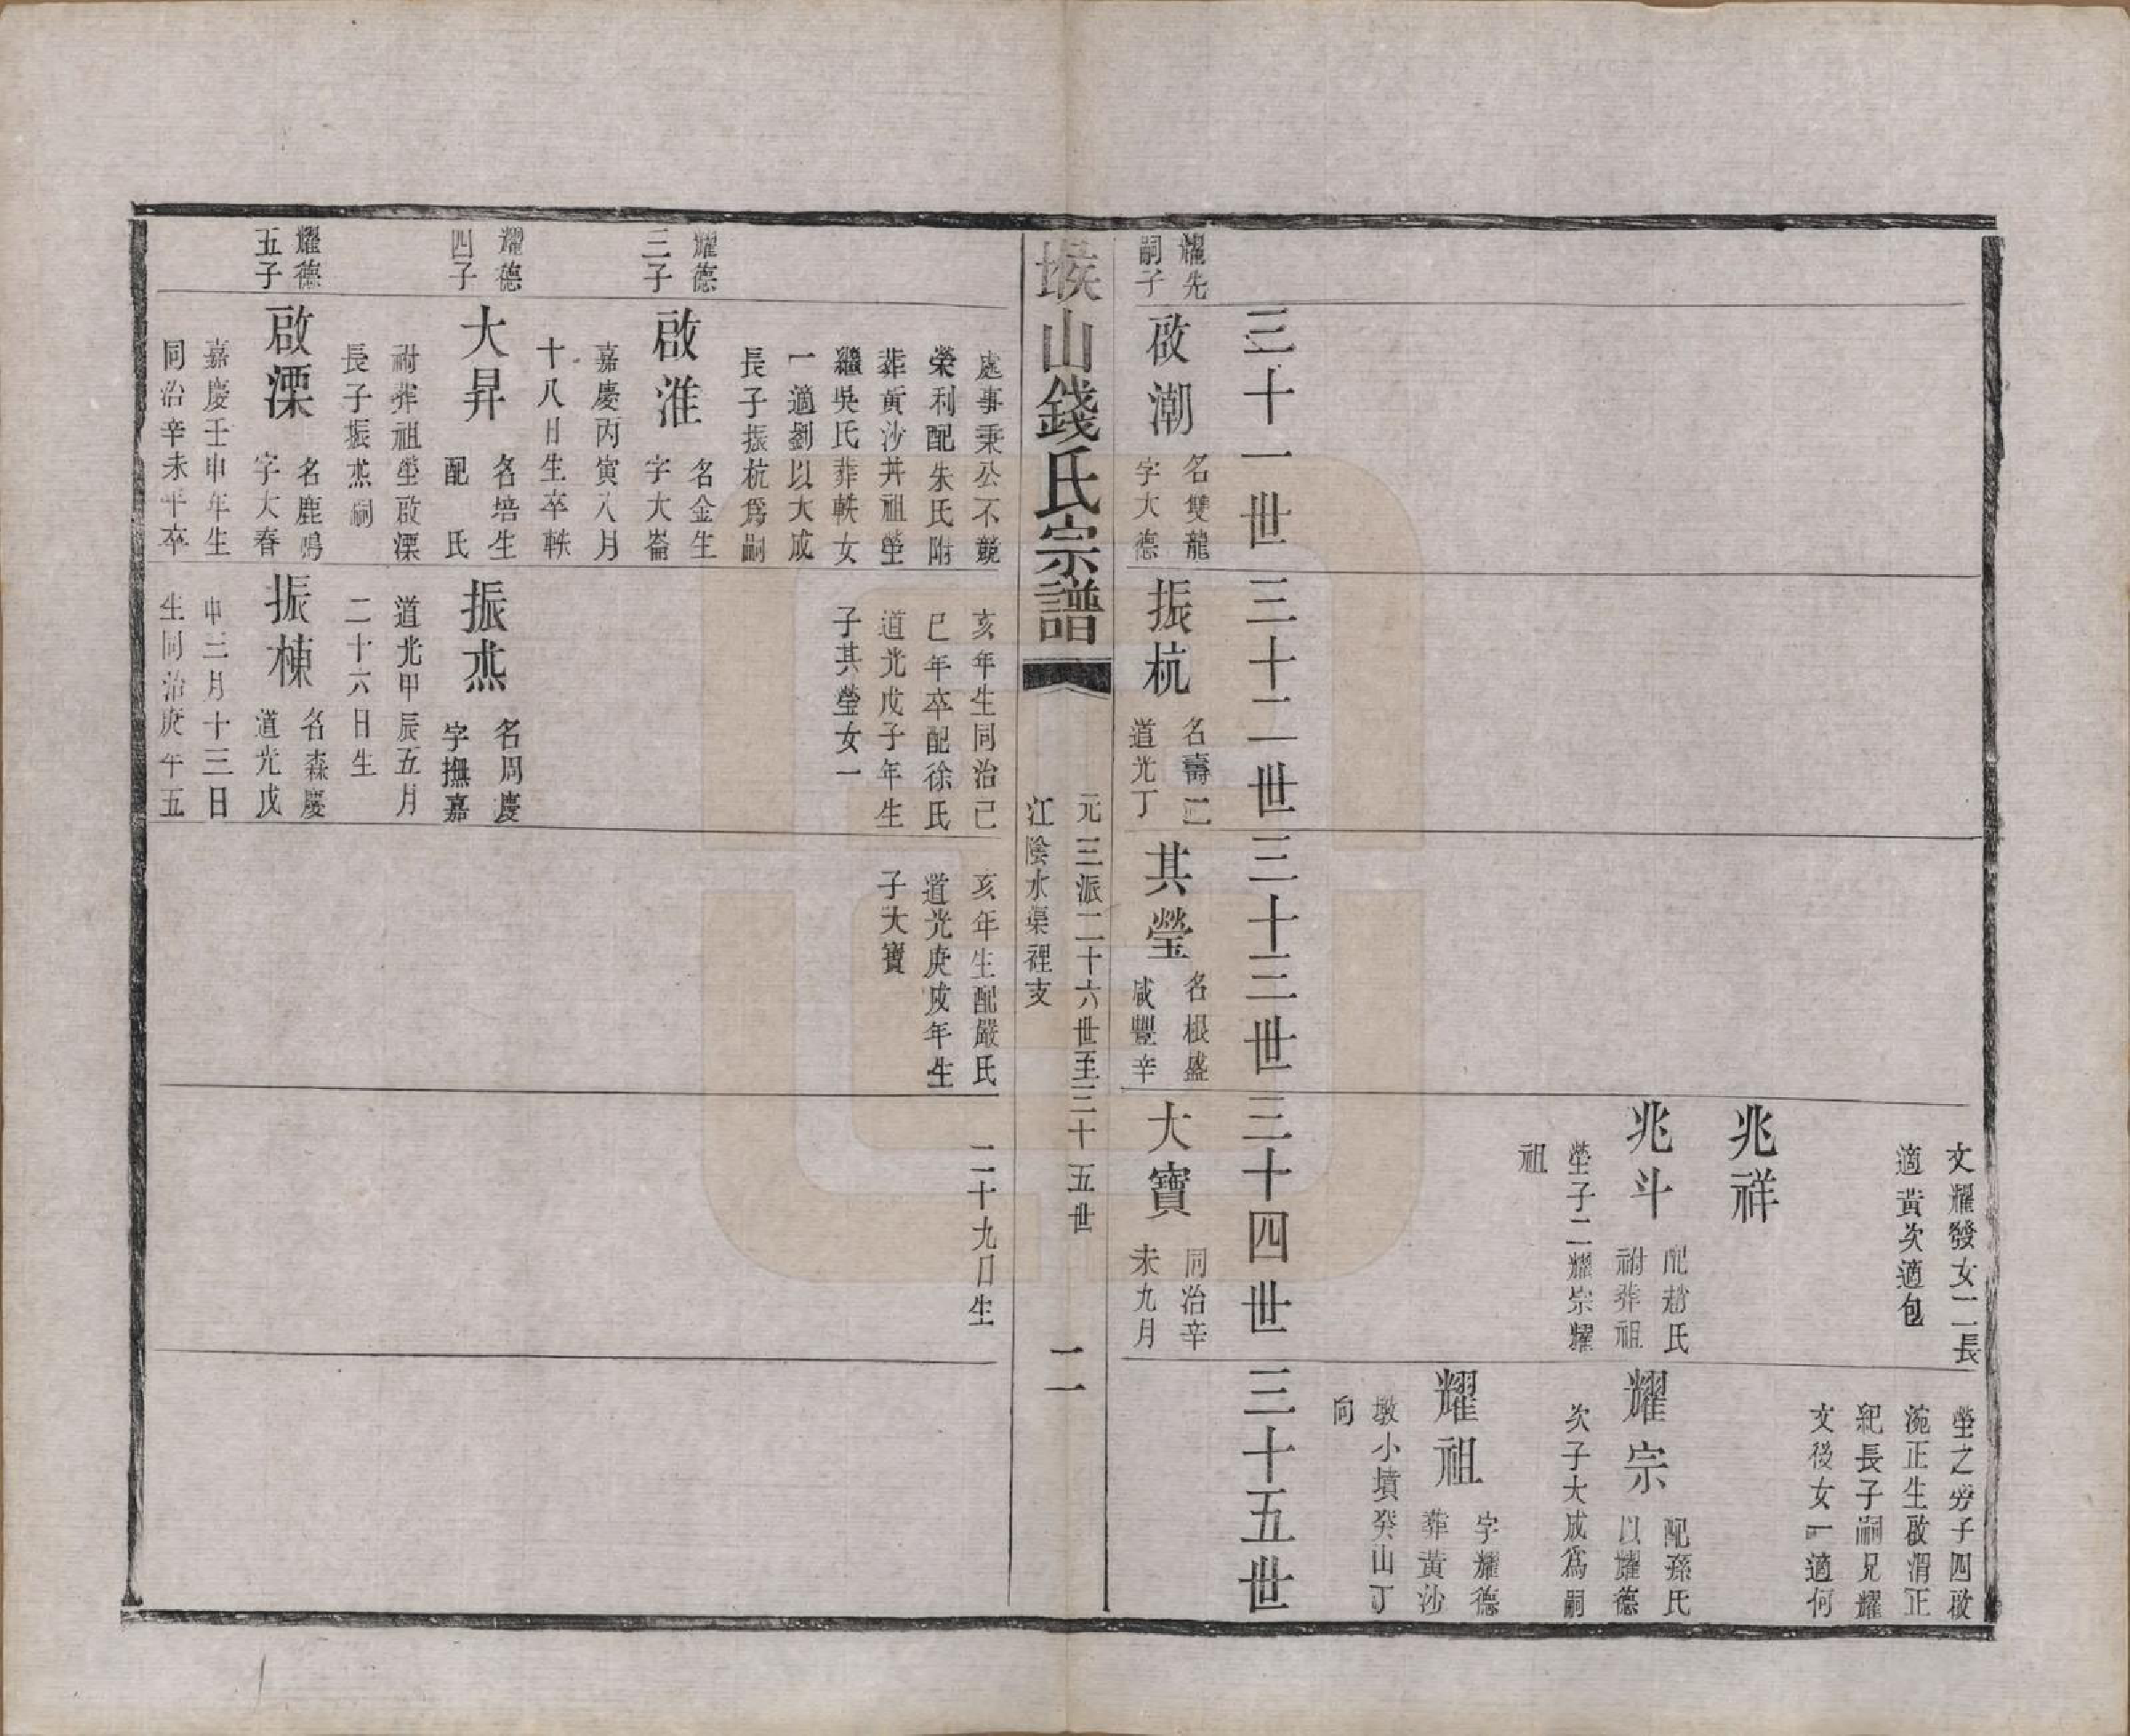 文耀發女二長
適黃次適包
兆祥
兆斗
配趙氏
祔葬祖
塋子二耀宗耀
祖
塋之旁子四啟
涴正生啟渭正
紀長子嗣兄耀
文後女一適何
耀宗
配孫氏
以耀德
次子大成爲嗣
耀祖
字耀德
葬黃沙
墩小墳癸山丁
向
三十一世
三十二世
三十三世
三十四世
三十五世
耀先
嗣子
啟潮
名雙龍
字大德
振杭
名壽二
道光丁
其瑩
名根盛
咸豐辛
大寶
同治辛
未九月
堠山錢氏宗譜
元三派二十六世至三十五世
江陰水渠裡支
二
處事秉公不競
榮利配朱氏附
葬黃沙井祖塋
繼吳氏葬軼女
一適劉以大成
長子振杭爲嗣
亥年生同治己
巳年卒配徐氏
道光戊子年生
子其瑩女一
亥年生配嚴氏
道光庚戌年生
子大寶
二十九日生
耀德
三子
啟淮
名金生
字大崙
嘉慶丙寅八月
十八日生卒軼
耀德
四子
大昇
名培生
配　氏
祔葬祖塋啟溧
長子振烝嗣
振烝
名周慶
字撫嘉
道光甲辰五月
二十六日生
耀德
五子
啟溧
名鹿鳴
字大春
嘉慶壬申年生
同治辛未年卒
振棟
名森慶
道光戊
申三月十三日
生同治庚午五